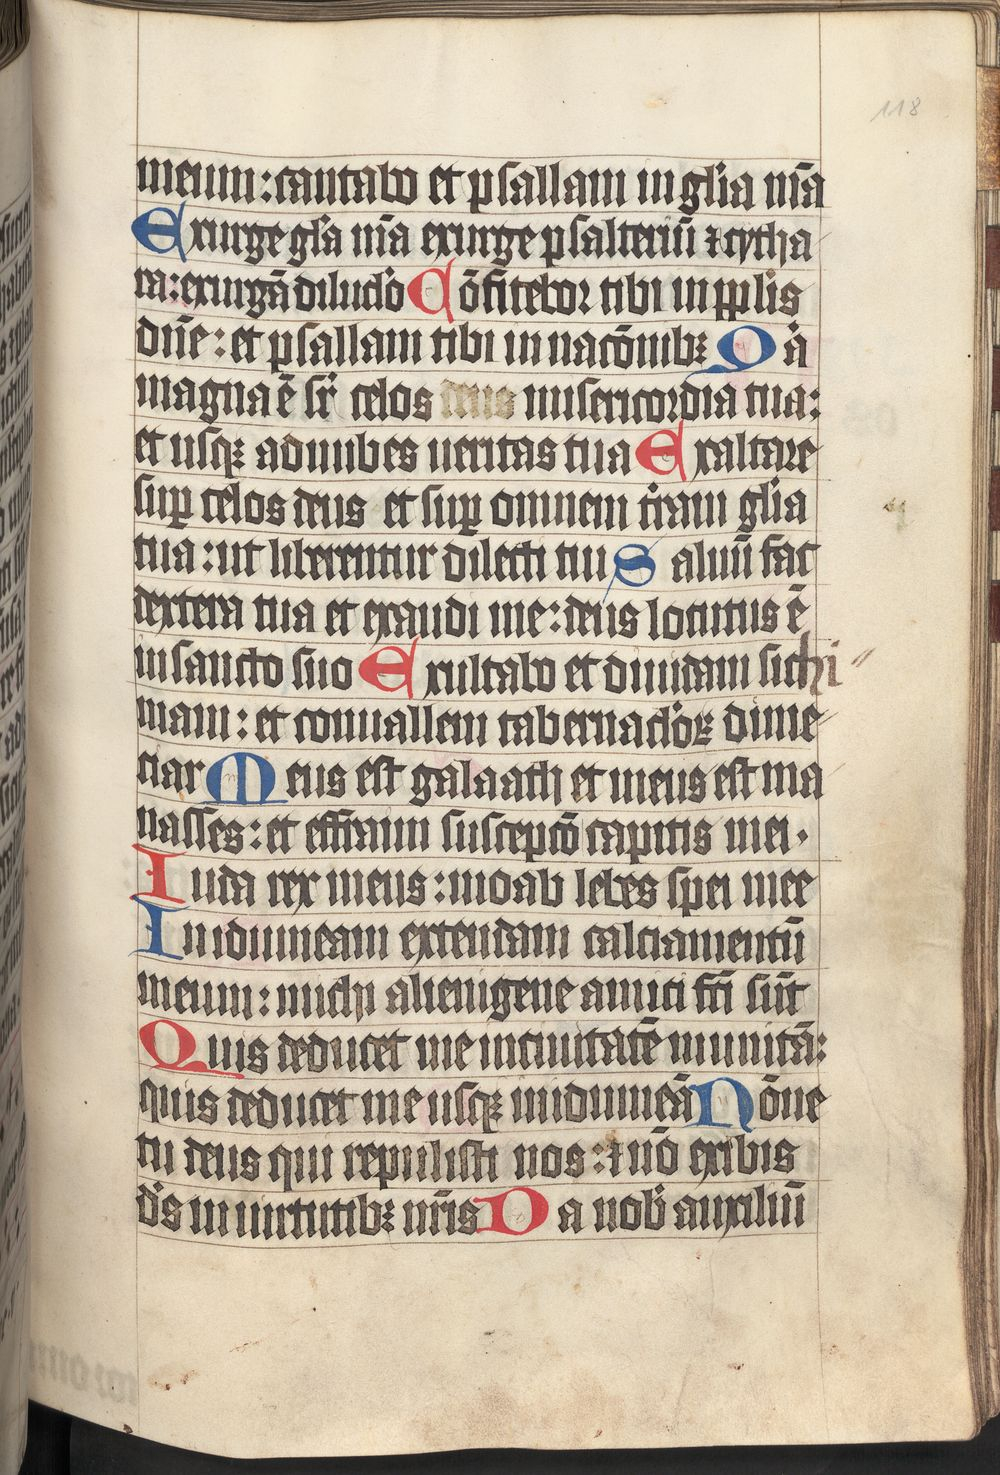 118
meum: cantabo et psallam in gl̄ia m̄a
Exurge gl̄a m̄a exurge psalteriū ⁊ cytha
ra: exurgā diluc̄lo Cōfitebor tibi in pp̄lis
dn̄e: et psallam tibi in nac̄oībꝫ Qā
magna ē sr̄ celos deus misericordia tua:
et usqꝫ ad nubes ueritas tua Exaltare
suꝑ celos deus et suꝑ omnem tr̄am gl̄ia
tua: ut liberentur dilecti tui Saluū fac
dextera tua et exaudi me: deus locutus ē
in sancto suo Exultabo et diuidam sichi
mam: et conuallem tabernaclōꝝ dime
tiar Meus est galaath et meus est ma
nasses: et effraim suscepcō capitis mei.
Iuda rex meus: moab lebes spei mee
In idumeam extendam calciamentū
meum: michi alienigene amici fc̄i sūt
Quis deducet me in ciuitatē munitā:
quis deducet me usqꝫ in idumeā Nōne
tu deus qui repulisti nos: ⁊ nō exibis
ds̄ in uirtutibꝫ nr̄is Da nob̄ auxiliū